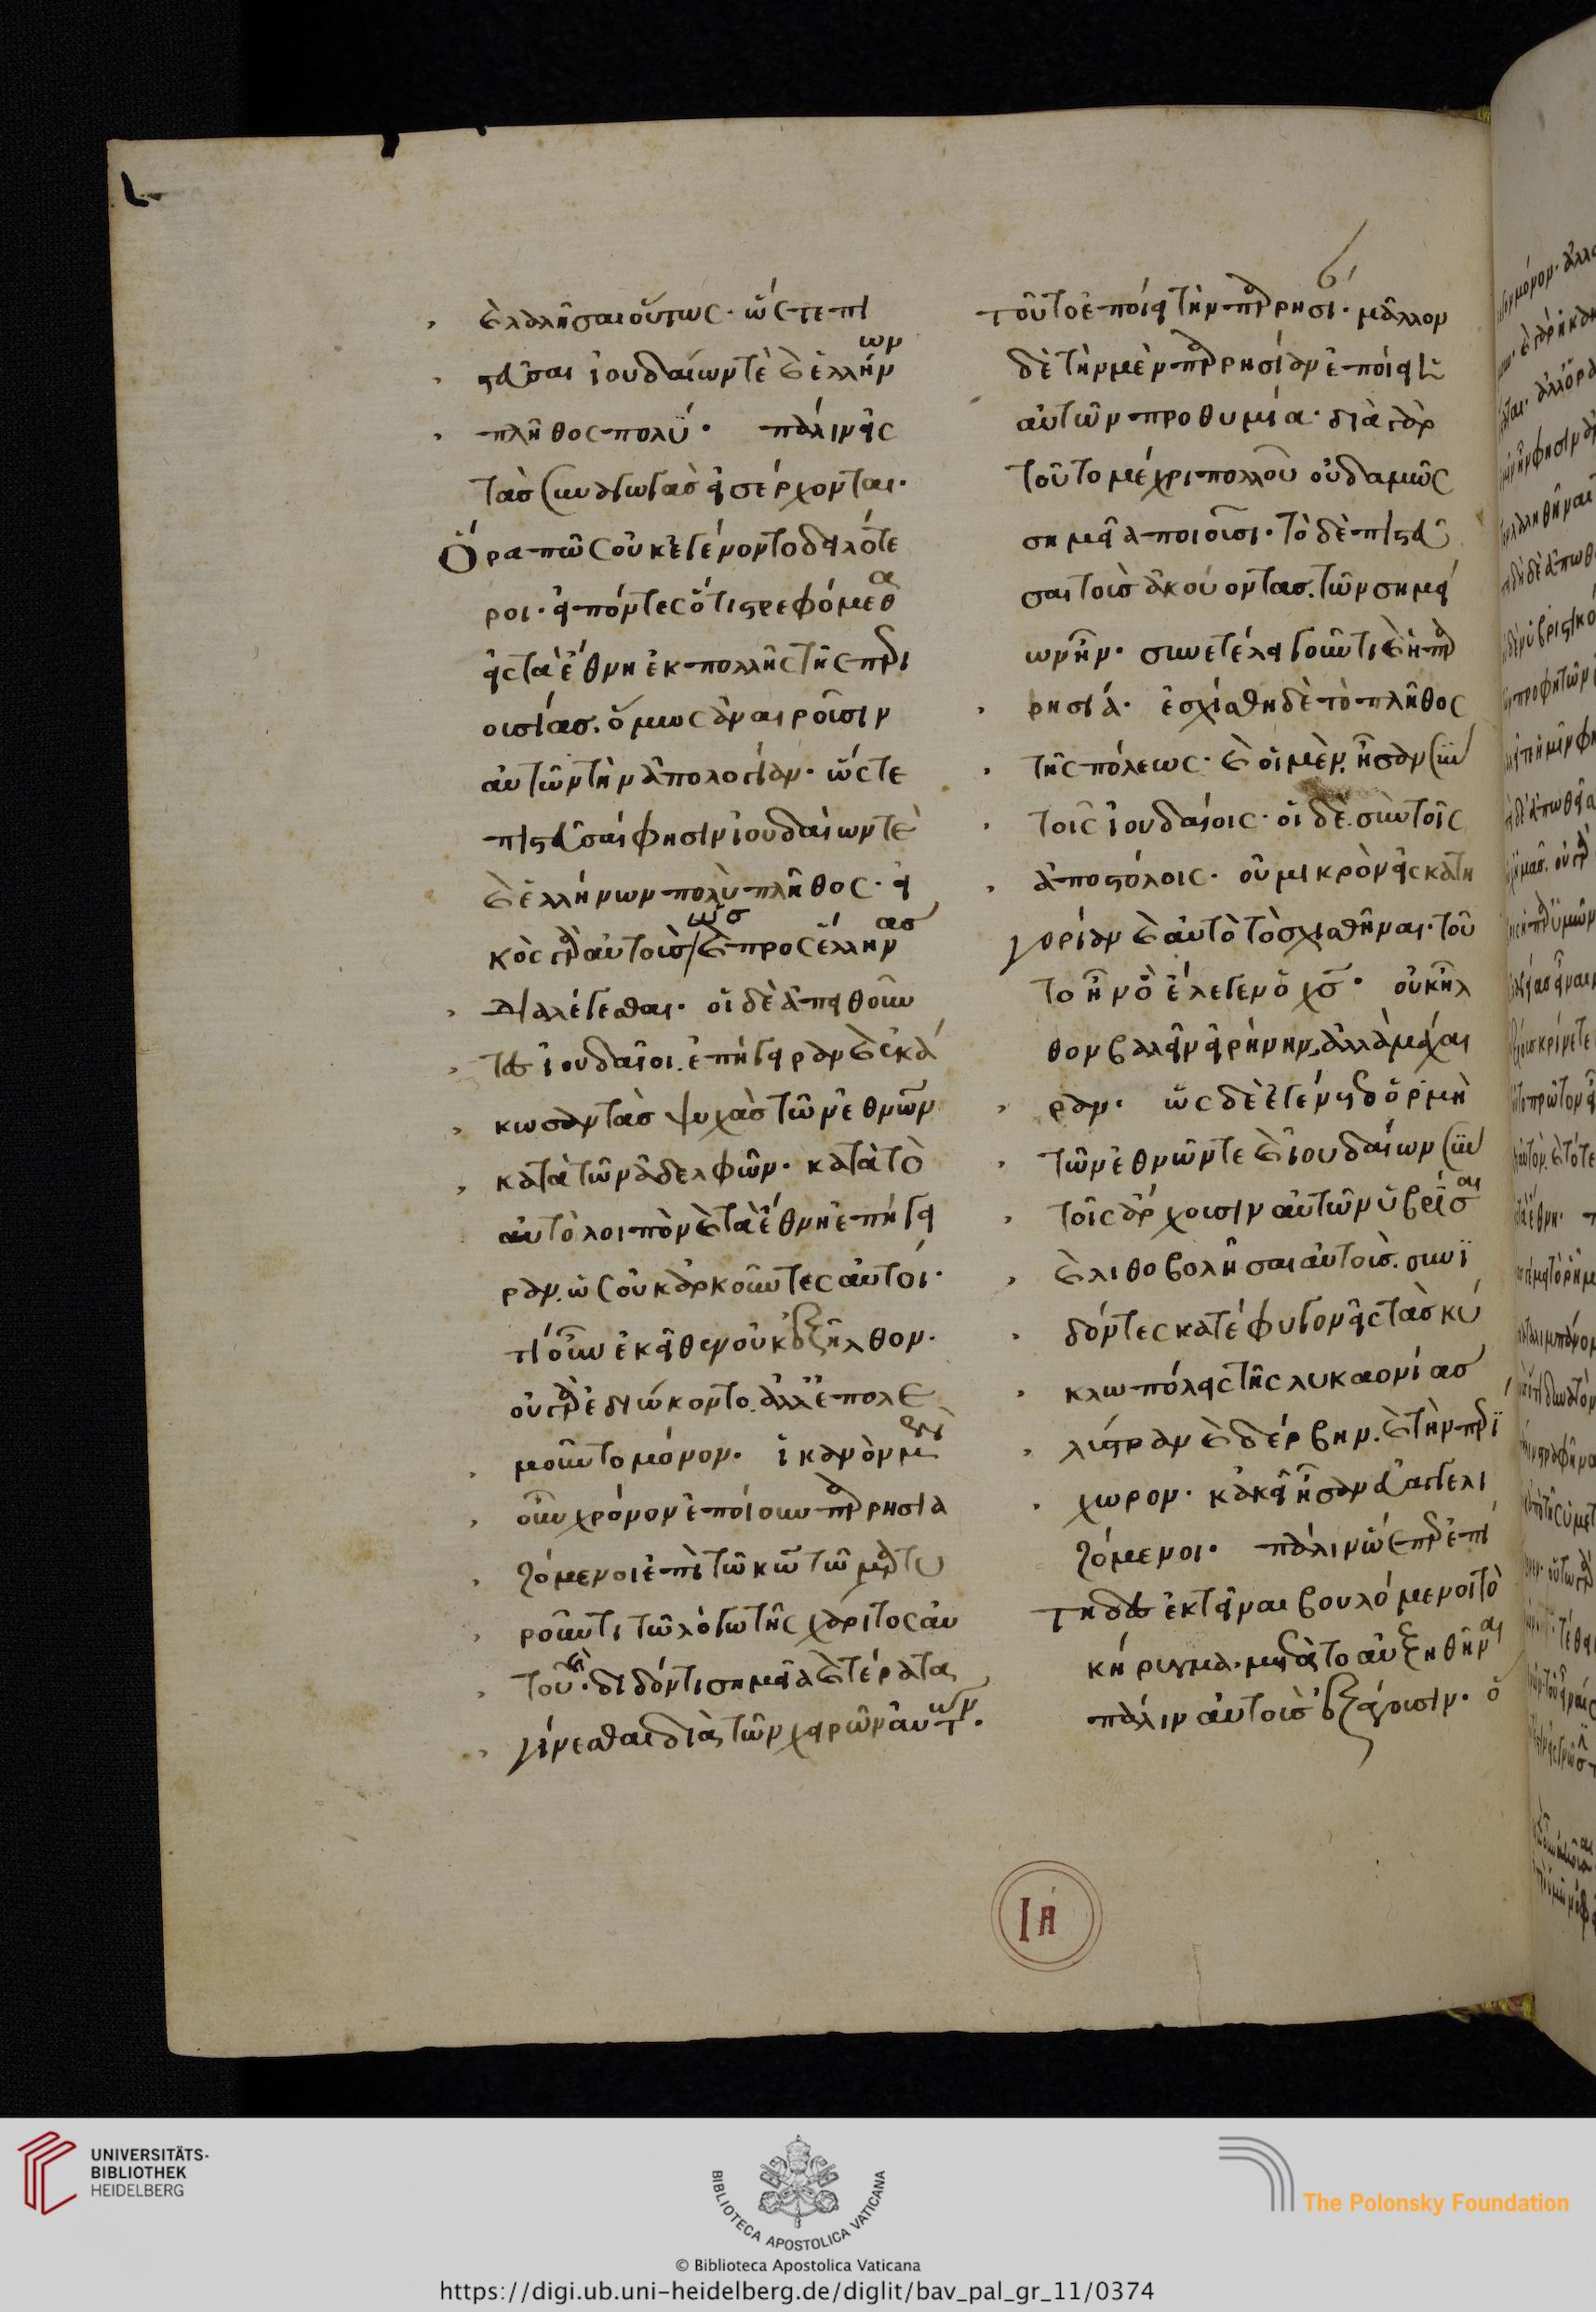 καὶ λαλῆσαι οὕτως· ὥστε πι
στεῦσαι ἰουδαίων τὲ καὶ ἑλλήνων
πλῆθος πολύ· πάλιν εἰς
τὰσ συναγωγὰσ εἰσέρχονται·
Ὅρα πῶς οὐκ ἐγένοντο δειλότε
ροι· εἰπόντες ὅτι στρεφόμεθα
εἰς τὰ ἔθνη ἐκ πολλῆς τῆς περι
ουσίασ. ὅμως ἀναιροῦσιν
αὐτῶν τὴν ἀπολογίαν· ὥστε
πιστεῦσαι φησὶν ἰουδαίων τὲ
καὶ ἑλλήνων πολὺ πλῆθος· εἰ
κὸς γὰρ αὐτοὺσ ὡσ καὶ προς ἕλληνασ
διαλέγεσθαι· οἱ δὲ ἀπειθοῦν
τες ἰουδαῖοι. ἐπήγειραν καὶ ἐκά
κωσαν τὰσ ψυχὰσ τῶν ἐθνῶν
κατὰ τῶν ἀδελφῶν· κατὰ τὸ
αὐτὸ λοιπὸν καὶ τὰ ἔθνη ἐπήγει
ραν. ὡς οὐκ ἀρκοῦντες αὐτοί·
τί οὖν ἐκεῖθεν οὐκ ἐξῆλθον·
οὐ γὰρ ἐδιώκοντο. ἀλλ' ἐπολε
μοῦντο μόνον· ἱκανὸν μὲν
οὖν χρόνον ἐποίουν παρρησια
ζόμενοι ἐπὶ τῶ κ̅ω̅ τῶ μαρτυ
ροῦντι τῶ λόγω τῆς χάριτος αὐ
τοῦ καὶ· διδόντι σημεῖα καὶ τέρατα
γίνεσθαι διὰ τῶν χειρῶν αὐτῶν·
τοῦτο ἐποίει τὴν παρρησί· μᾶλλον
δὲ τὴν μὲν παρρησίαν ἐποίει ἡ
αὐτῶν προθυμία· διὰ γὰρ
τοῦτο μέχρι πολλοῦ οὐδαμῶς
σημεῖα ποιοῦσι· τὸ δὲ πιστεῦ
σαι τοὺσ ἀκούοντασ. τῶν σημεί
ων ἦν· συνετέλει γοῦν τι καὶ ἡ παρ
ρησία· ἐσχίσθη δὲ τὸ πλῆθος
τῆς πόλεως· καὶ οἱ μὲν. ἦσαν σὺν
τοῖς ἰουδαίοις· οἱ δὲ. σὺν τοῖς
ἀποστόλοις· οὐ μικρὸν εἰς κατη
γορίαν καὶ αὐτὸ τὸ σχισθῆναι· τοῦ
το ἦν ὃ ἔλεγεν ὁ χ̅σ̅· οὐκ ἦλ
θον βαλεῖν εἰρήνην, ἀλλὰ μάχαι
ραν· ὡς δὲ ἐγένετο ὁρμὴ
τῶν ἐθνῶν τε καὶ ἰουδαίων σὺν
τοῖς ἄρχουσιν αὐτῶν ὑβρίσαι
καὶ λιθοβολῆσαι αὐτούσ. συνϊ
δόντες κατέφυγον εἰς τὰσ κύ
κλω πόλεις τῆς λυκαονίασ
λύστραν καὶ δέρβην. καὶ τὴν περί
χωρον· κἀκεῖ ἦσαν εὐαγγελι
ζόμενοι· πάλιν ὥσπερ ἐπί
τηδες ἐκτεῖναι βουλόμενοι τὸ
κήρυγμα. μετὰ τὸ αὐξηθῆναι
πάλιν αὐτοὺσ ἐξάγουσιν· ὅ
ΙΗ
UNIVERSITÄTS-
BIBLIOTHEK
HEIDELBERG
BIBLIOTECA APOSTOLICA VATICANA
The Polonsky Foundation
© Biblioteca Apostolica Vaticana
https://digi.ub.uni-heidelberg.de/diglit/bav_pal_gr_11/0374